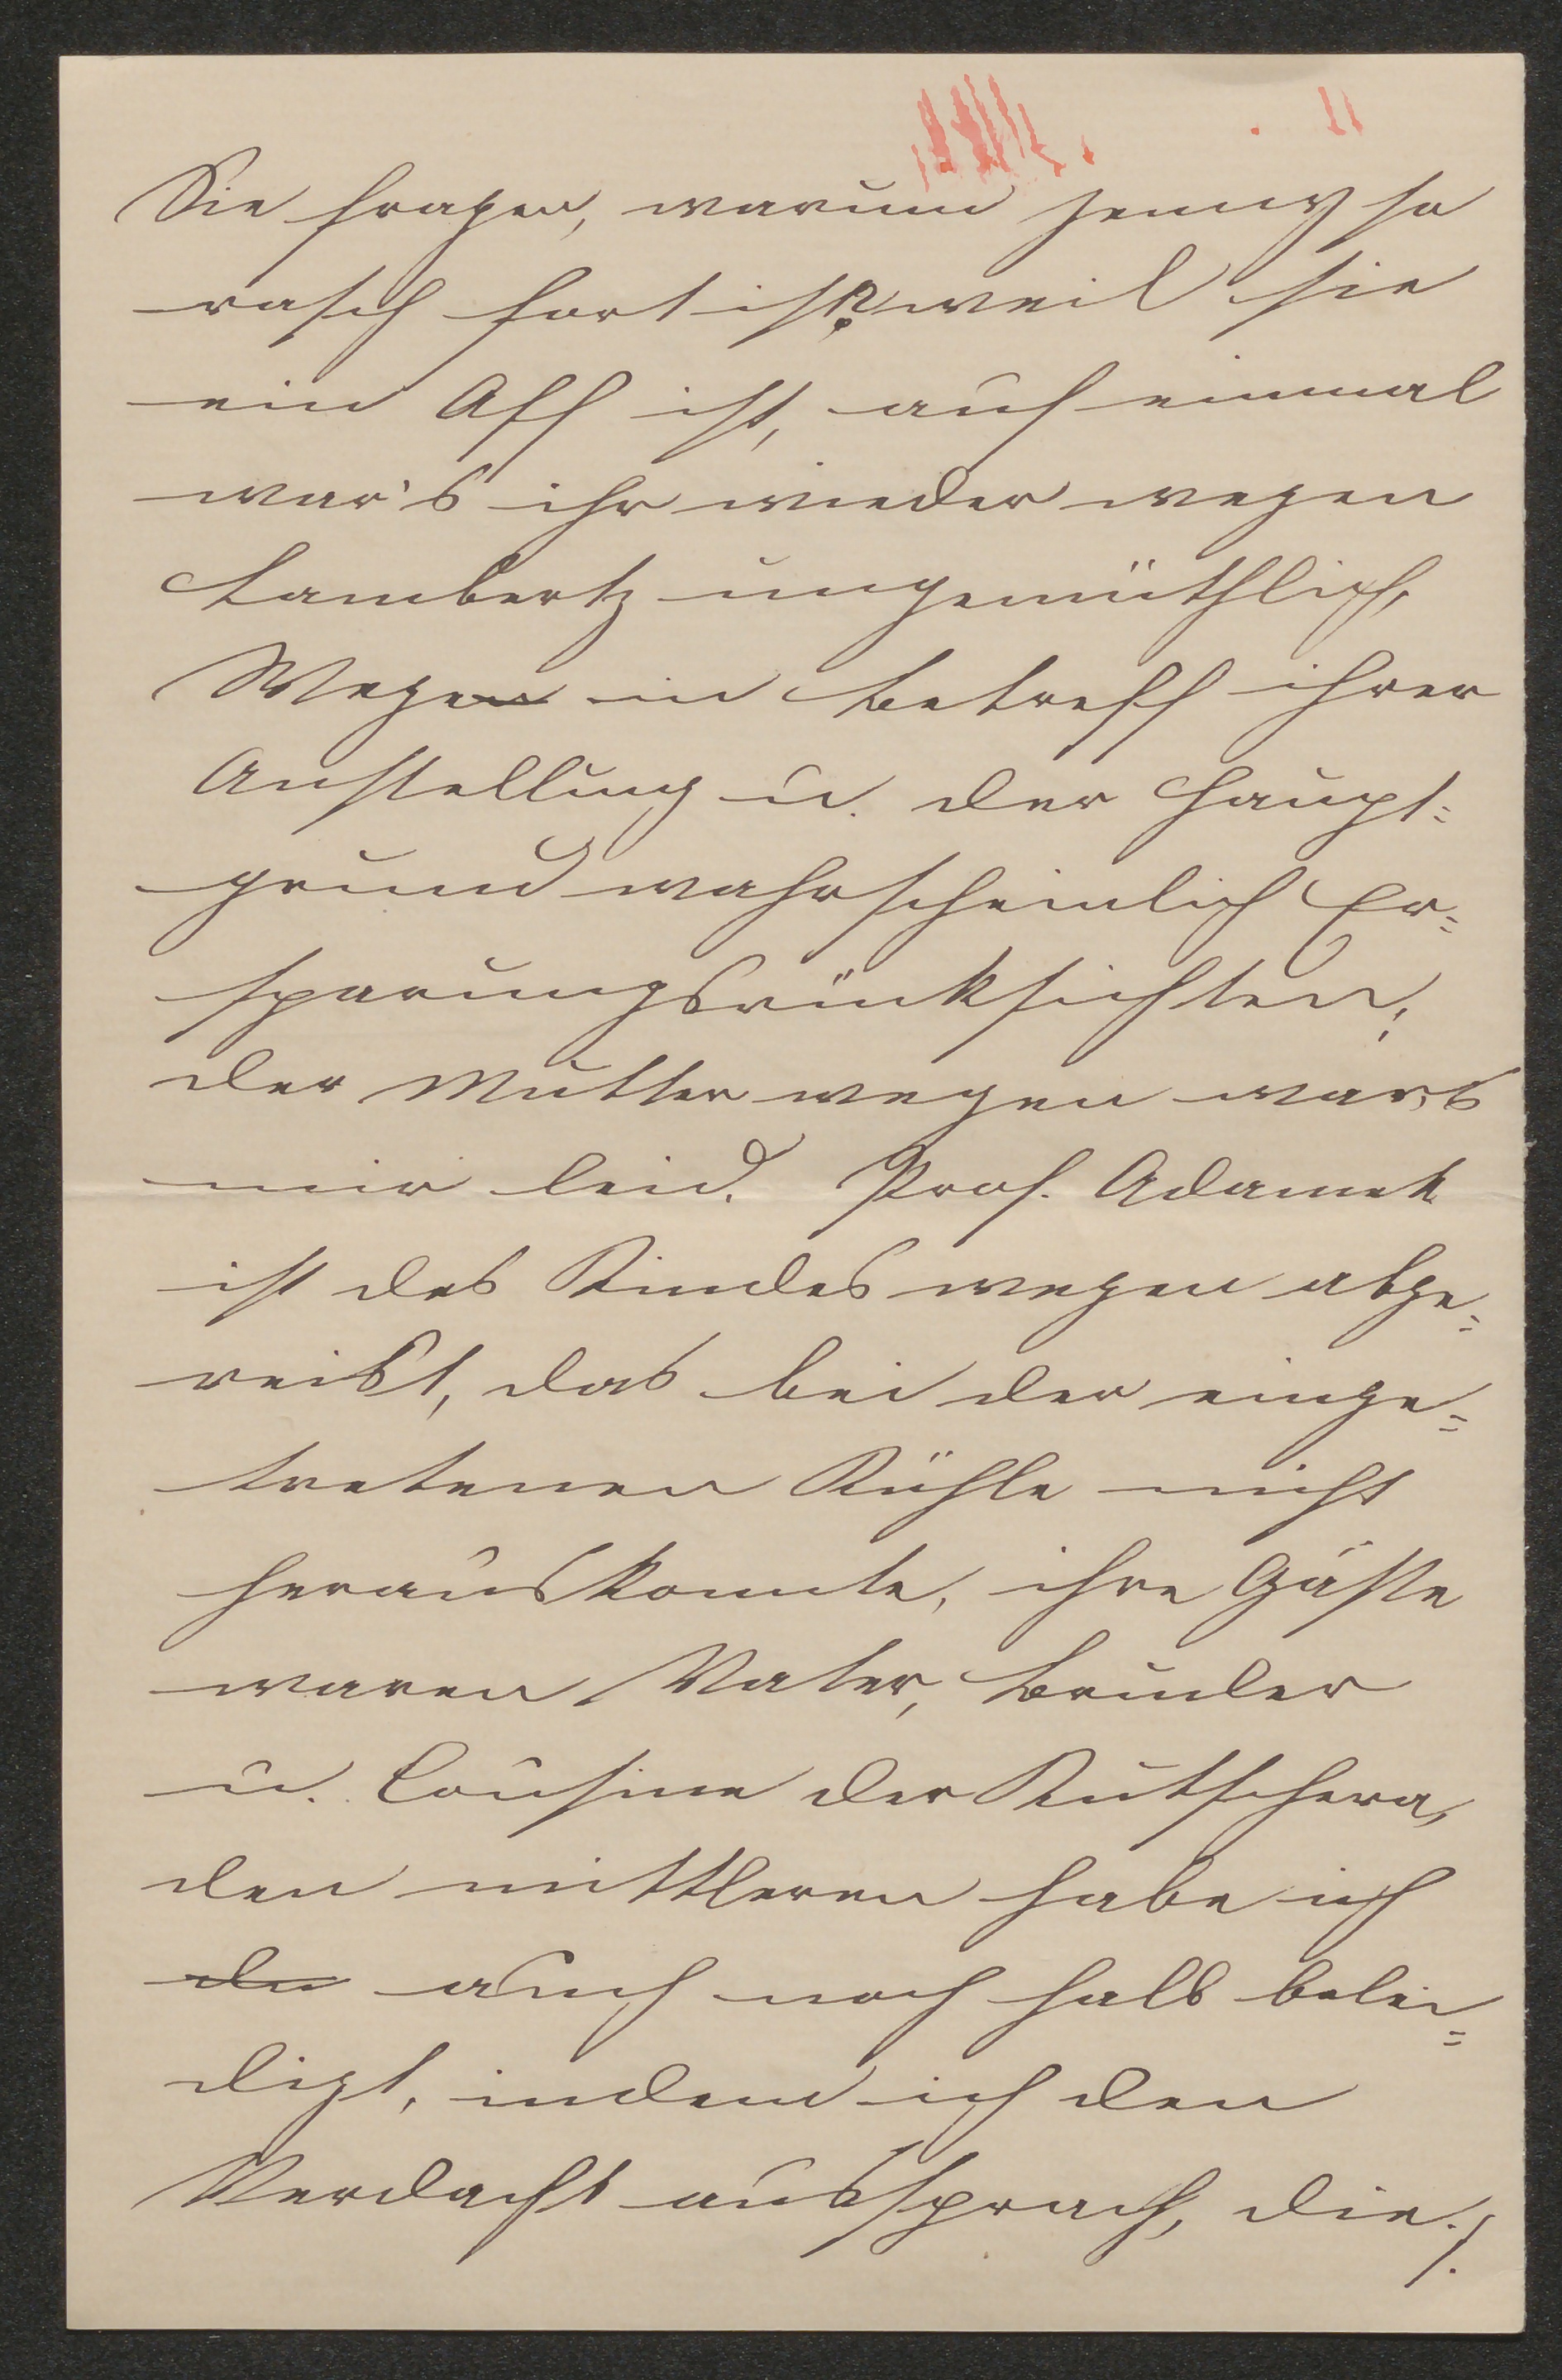 Sie fragen, warum Jenny so
rasch fort ist? weil sie
ein Aff ist, auf einmal
war's ihr wieder wegen
Lambertz ungemüthlich,
Wege in Betreff ihrer
Anstellung u. der Haupt=
grund wahrscheinlich Er=
sparungsrücksichten,
der Mutter wegen war's
mir leid. Prof. Adamek
ist des Kindes wegen abge=
reist, das bei der einge=
tretenen Kühle nicht
heraus konnte, ihre Gäste
waren Vater, Bruder
u. Cousine der Kutschera,
den mittleren habe ich
du auch noch halb belei=
digt, indem ich den
Verdacht aussprach, die ./.